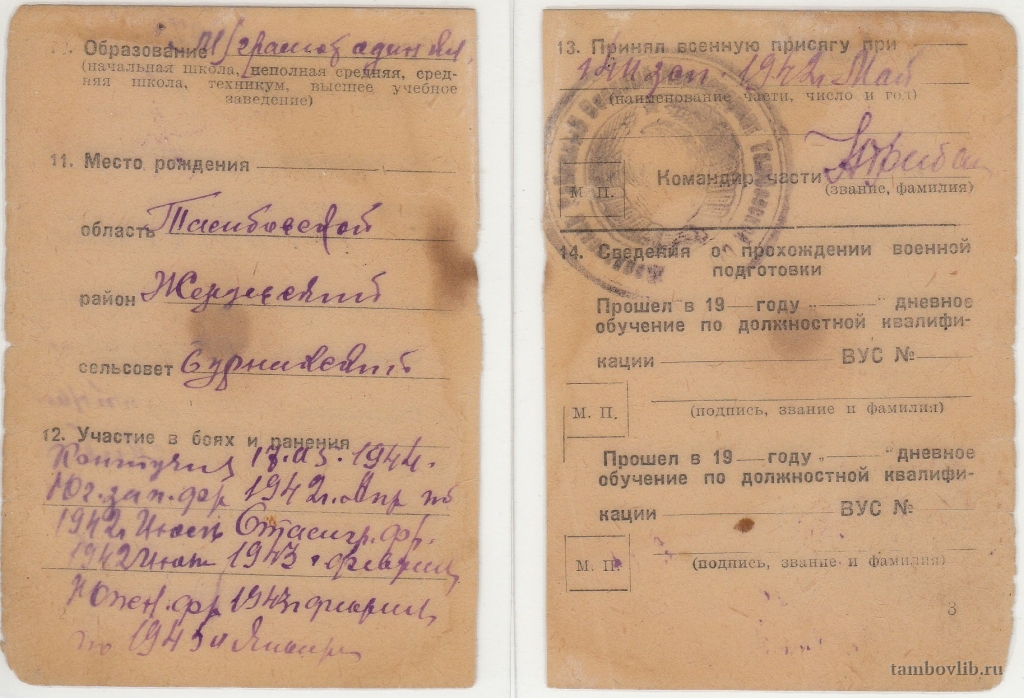 Образование М/грамот один кл.
(начальная школа, неполная средняя, сред-
няя школа, техникум, высшее учебное
заведение)
11. Место рождения
область Тамбовской
район Жердевский
сельсовет
12. Участие в боях и ранения
Контузия 17.03.1944.
Юг. зап. фр 1942г. Апр по
1942г Июль Сталигр. фр.
1942 Июль 1943 г феврал
Южн. фр 1943г феврал
по 1945г Январ
13. Принял военную присягу при
зап. 1942г. Май
(наименование части, число и год)
Командир части
(звание, фамилия)
М П.
14. Сведения о прохождении военной
подготовки
Прошел в 19 — году „ — “ дневное
обучение по должностной квалифи-
кации — ВУС № —
М. П.
(подпись, звание и фамилия)
Прошел в 19 — году „ — “ дневное
обучение по должностной квалифи-
кации ВУС №
М. П.
(подпись, звание и фамилия)
3
tambovlib.ru